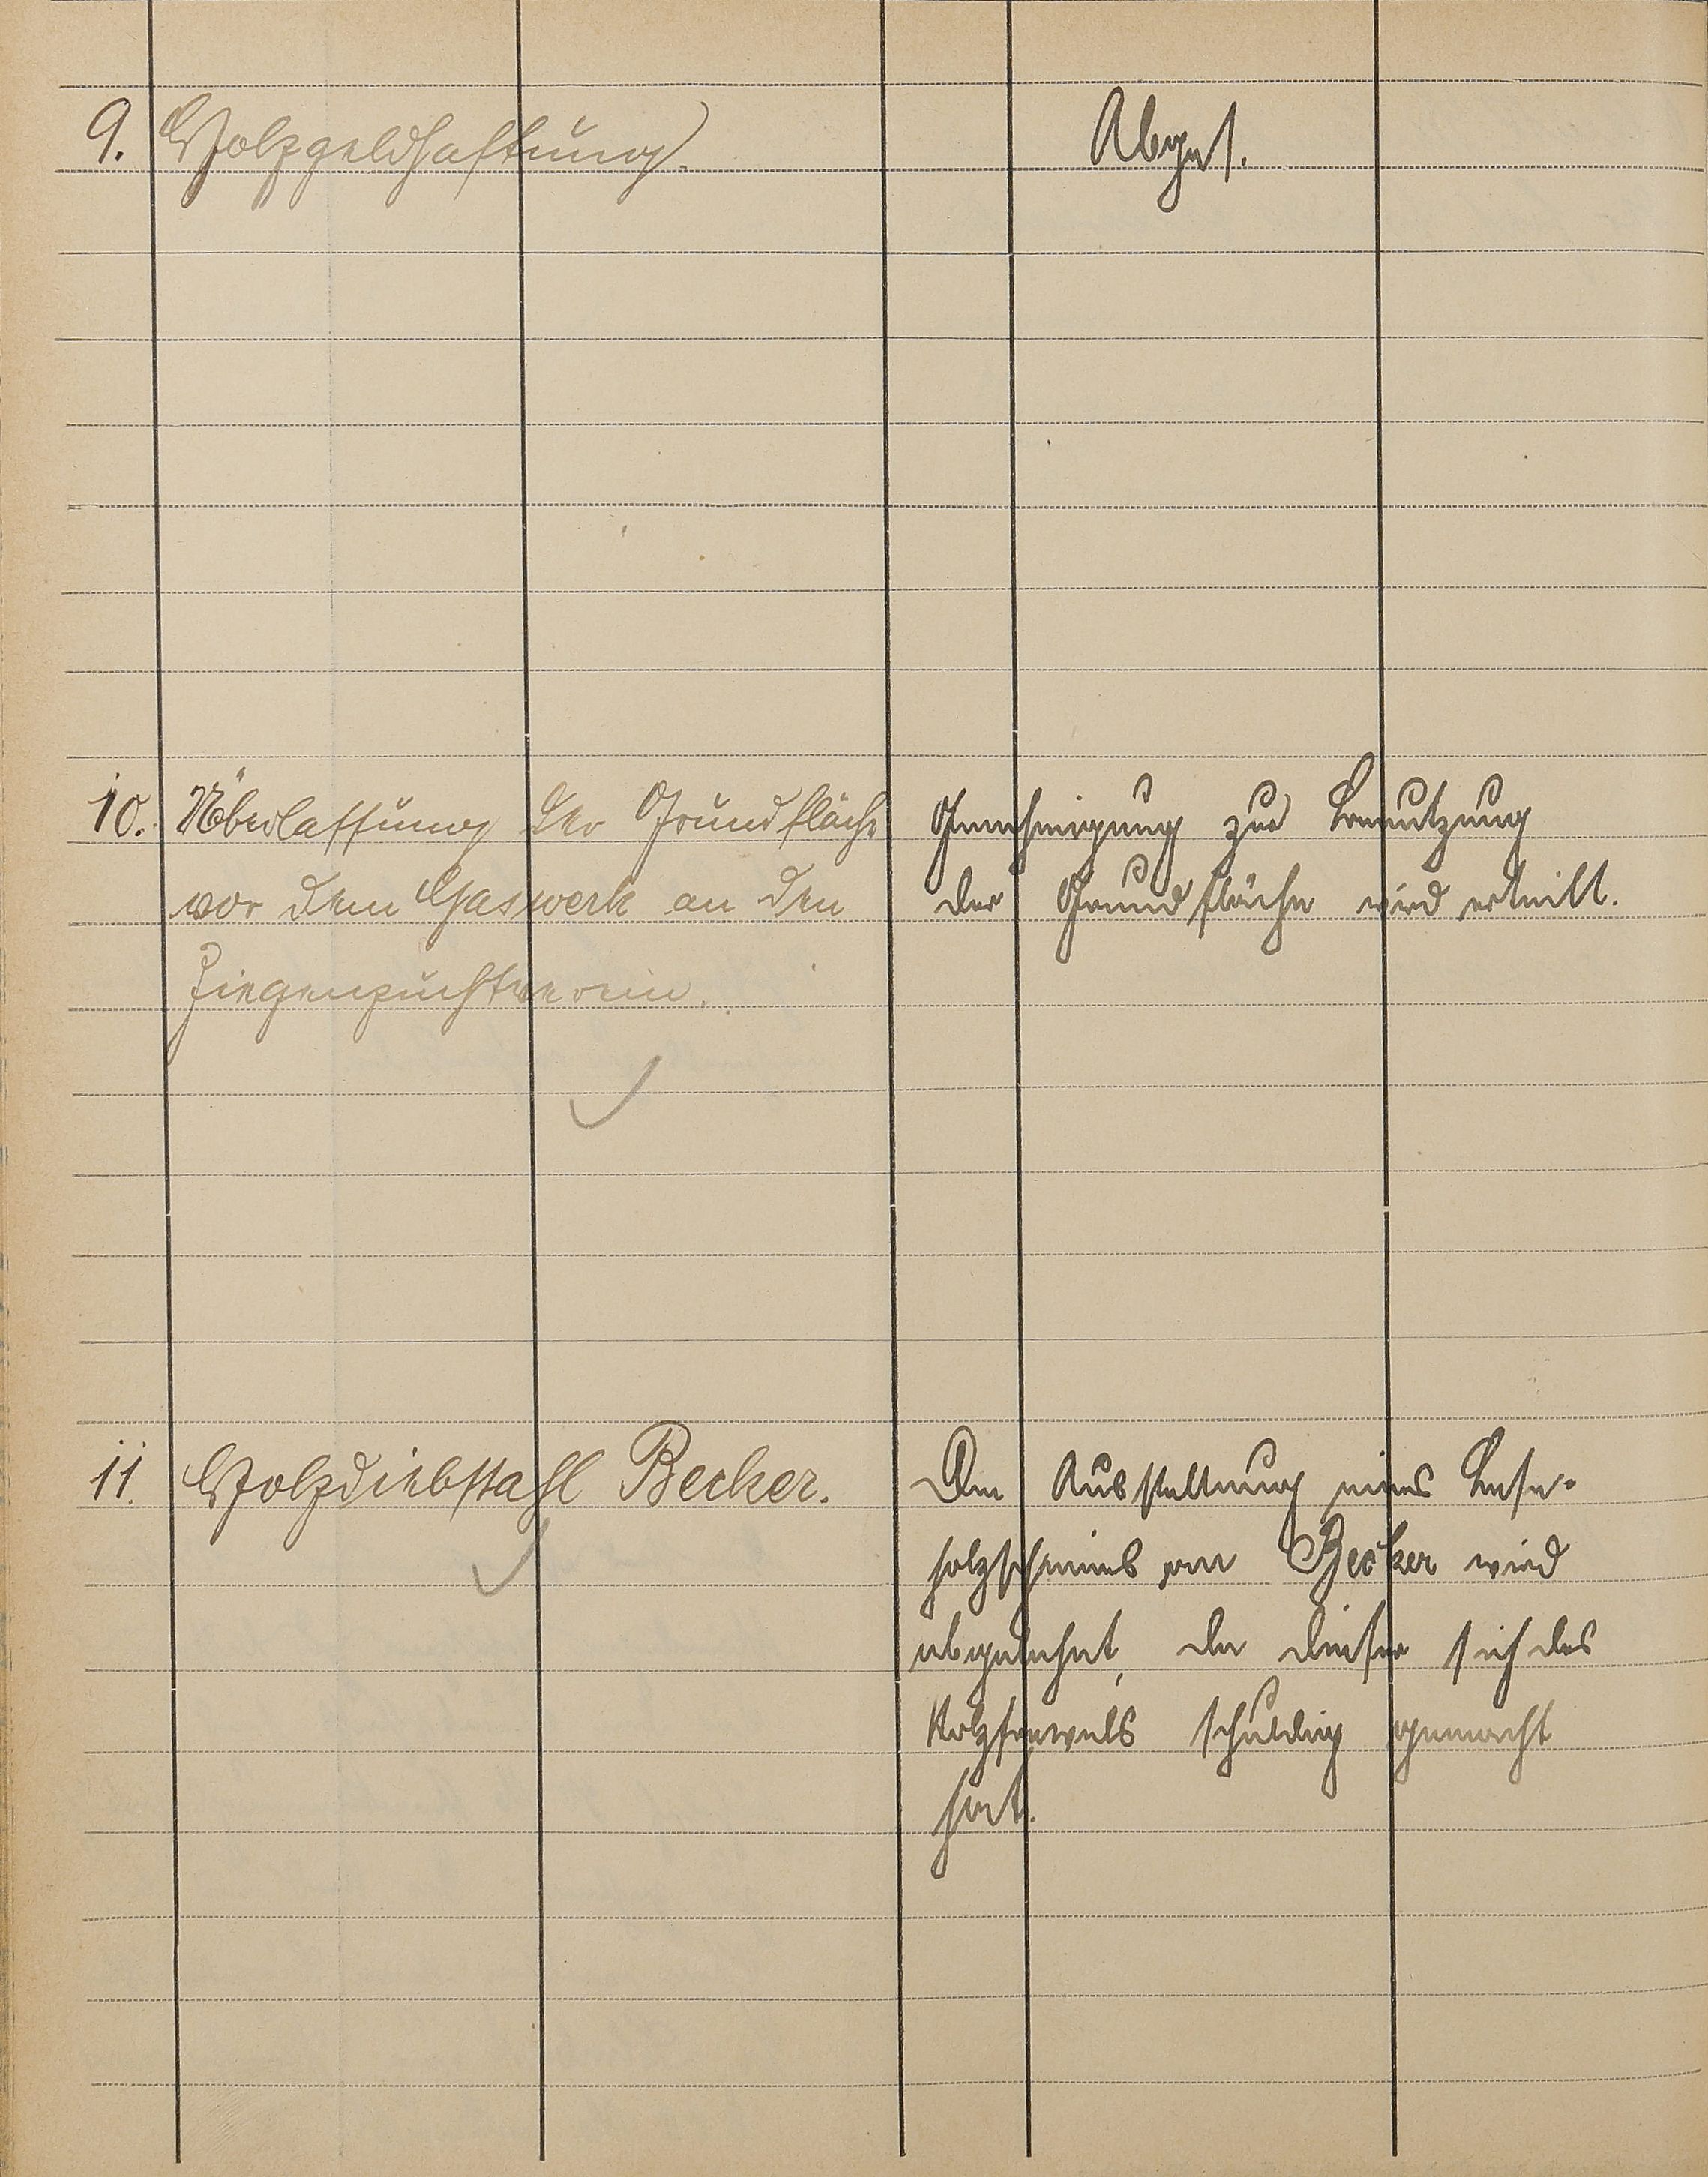 9. Holzgeldhaftung.
Abges.
10. Überlassung der Grundfläche
vor dem Gaswerk an den
Ziegenzuchtverein.
Genehmigung zur Benutzung
der Grundfläche wird erteilt.
11. Holzdiebstahl Becker.
Die Ausstellung eines Lese-
holzscheines an Becker wird
abgelehnt, da dieser sich des
Holzfrevels schuldig gemacht
hat.